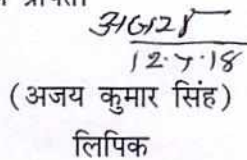 12.7.18
(अजय कुमार सिंह)
लिपिक